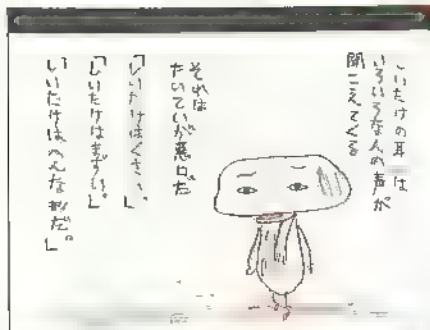 しいたけの耳には
いろいろな人の声が
聞こえてくる
それは
たいていが悪口だ
「しいたけはくさい。」
「しいたけはまずい。」
「しいたけはへんな形だ。」